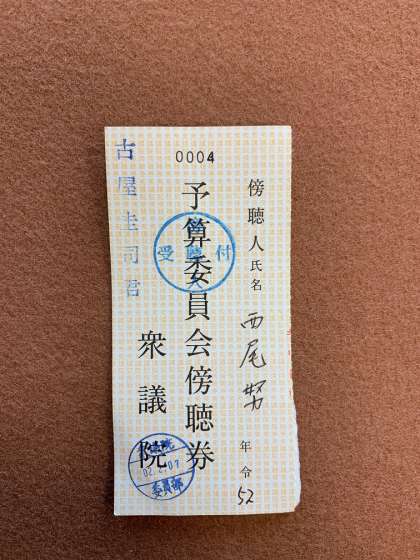 0004
傍聴人氏名 西尾努 年令 52
予算委員会傍聴券
衆議院
古屋圭司君
受付
02.2.07
委員部